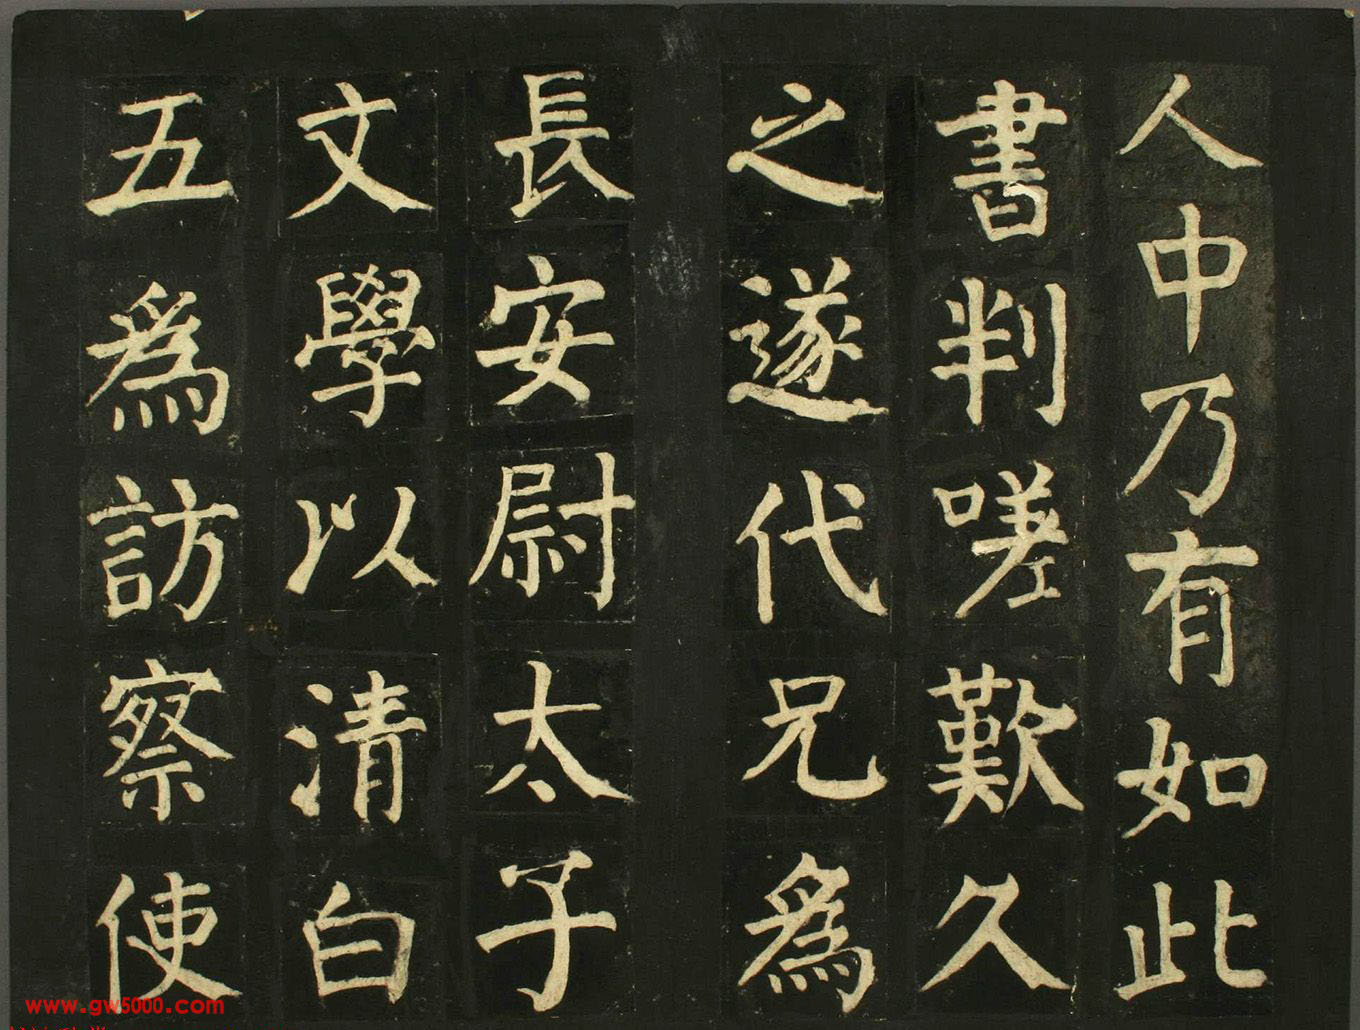 人中乃有如此
書判嗟歎久
之遂代兄為
長安尉太子
文學以清白
五為訪察使
www.gw5000.com